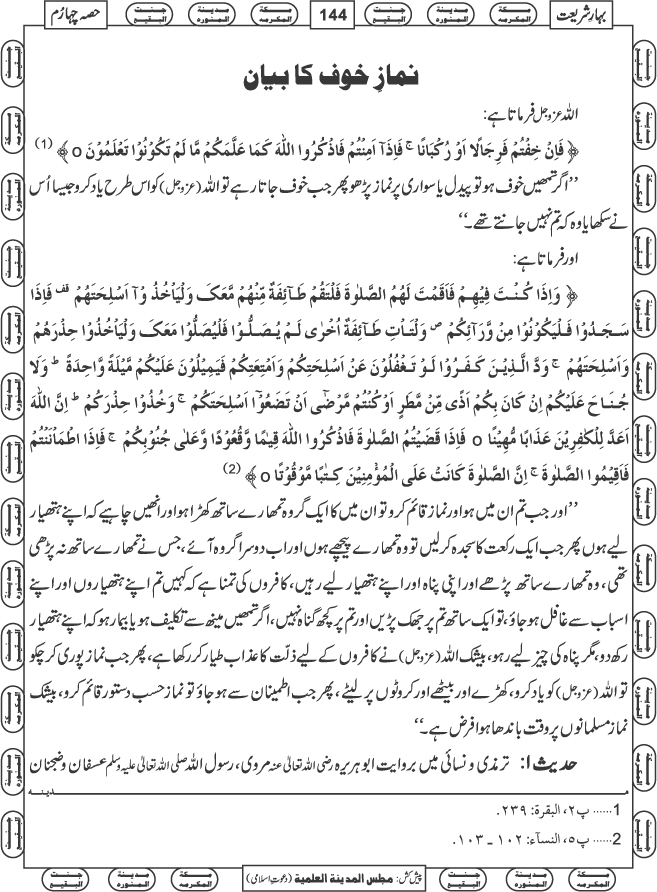 بہارِ شریعت مکۃ المکرمہ مدینۃ المنورہ جنت البقیع 144 مکۃ المکرمہ مدینۃ المنورہ جنت البقیع حصہ چہارم
نمازِ خوف کا بیان
اللہ عزوجل فرماتا ہے:
﴿ فَاِنْ خِفْتُمْ فَرِجَالًا اَوْ رُكْبَانًا ۚ فَاِذَاۤ اَمِنْتُمْ فَاذْكُرُوا اللّٰهَ كَمَا عَلَّمَكُمْ مَّا لَمْ تَكُوْنُوْا تَعْلَمُوْنَ o ﴾ (1)
’’اگر تمھیں خوف ہو تو پیدل یا سواری پر نماز پڑھو پھر جب خوف جاتا رہے تو اللہ (عزوجل) کو اس طرح یاد کرو جیسا اُس
نے سکھایا وہ کہ تم نہیں جانتے تھے۔‘‘
اور فرماتا ہے:
﴿ وَاِذَا كُنْتَ فِيْهِمْ فَاَقَمْتَ لَهُمُ الصَّلٰوةَ فَلْتَقُمْ طَآئِفَةٌ مِّنْهُمْ مَّعَكَ وَلْيَاْخُذُ وْۤا اَسْلِحَتَهُمْ قف فَاِذَا
سَجَدُوْا فَلْيَكُوْنُوْا مِنْ وَّرَآئِكُمْ ص وَلْتَاْتِ طَآئِفَةٌ اُخْرٰى لَمْ يُصَلُّوْا فَلْيُصَلُّوْا مَعَكَ وَلْيَاْخُذُوْا حِذْرَهُمْ
وَاَسْلِحَتَهُمْ ۚ وَدَّ الَّذِيْنَ كَفَرُوْا لَوْ تَغْفُلُوْنَ عَنْ اَسْلِحَتِكُمْ وَاَمْتِعَتِكُمْ فَيَمِيْلُوْنَ عَلَيْكُمْ مَّيْلَةً وَّاحِدَةً ؕ وَلَا
جُنَاحَ عَلَيْكُمْ اِنْ كَانَ بِكُمْ اَذًى مِّنْ مَّطَرٍ اَوْ كُنْتُمْ مَّرْضٰۤى اَنْ تَضَعُوْۤا اَسْلِحَتَكُمْ ۚ وَخُذُوْا حِذْرَكُمْ ؕ اِنَّ اللّٰهَ
اَعَدَّ لِلْكٰفِرِيْنَ عَذَابًا مُّهِيْنًا o فَاِذَا قَضَيْتُمُ الصَّلٰوةَ فَاذْكُرُوا اللّٰهَ قِيٰمًا وَّقُعُوْدًا وَّعَلٰى جُنُوْبِكُمْ ۚ فَاِذَا اطْمَاْنَنْتُمْ
فَاَقِيْمُوا الصَّلٰوةَ ۚ اِنَّ الصَّلٰوةَ كَانَتْ عَلَى الْمُؤْمِنِيْنَ كِتٰبًا مَّوْقُوْتًا o ﴾ (2)
’’اور جب تم ان میں ہو اور نماز قائم کرو تو ان میں کا ایک گروہ تمھارے ساتھ کھڑا ہو اور انھیں چاہیے کہ اپنے ہتھیار
لیے ہوں پھر جب ایک رکعت کا سجدہ کر لیں تو وہ تمھارے پیچھے ہوں اور اب دوسرا گروہ آئے، جس نے تمھارے ساتھ نہ پڑھی
تھی، وہ تمھارے ساتھ پڑھے اور اپنی پناہ اور اپنے ہتھیار لیے رہیں، کافروں کی تمنا ہے کہ کہیں تم اپنے ہتھیاروں اور اپنے
اسباب سے غافل ہو جاؤ، تو ایک ساتھ تم پر جھک پڑیں اور تم پر کچھ گناہ نہیں، اگر تمھیں مینھ سے تکلیف ہو یا بیمار ہو کہ اپنے ہتھیار
رکھ دو، مگر پناہ کی چیز لیے رہو، بیشک اللہ (عزوجل) نے کافروں کے لیے ذلّت کا عذاب طیار کر رکھا ہے، پھر جب نماز پوری کر چکو
تو اللہ (عزوجل) کو یاد کرو، کھڑے اور بیٹھے اور کروٹوں پر لیٹے، پھر جب اطمینان سے ہو جاؤ تو نماز حسب دستور قائم کرو، بیشک
نماز مسلمانوں پر وقت باندھا ہوا فرض ہے۔‘‘
حدیث ۱: ترمذی و نسائی میں بروایت ابو ہریرہ رضی اللہ تعالیٰ عنہ مروی، رسول اللہ صلی اللہ تعالیٰ علیہ وسلم عسفان و ضجنان
مدینہ
1 ...... پ۲، البقرۃ: ۲۳۹.
2 ...... پ۵، النسآء: ۱۰۲ ۔ ۱۰۳.
مکۃ المکرمہ مدینۃ المنورہ جنت البقیع پیش کش: مجلس المدینۃ العلمیۃ (دعوتِ اسلامی) مکۃ المکرمہ مدینۃ المنورہ جنت البقیع